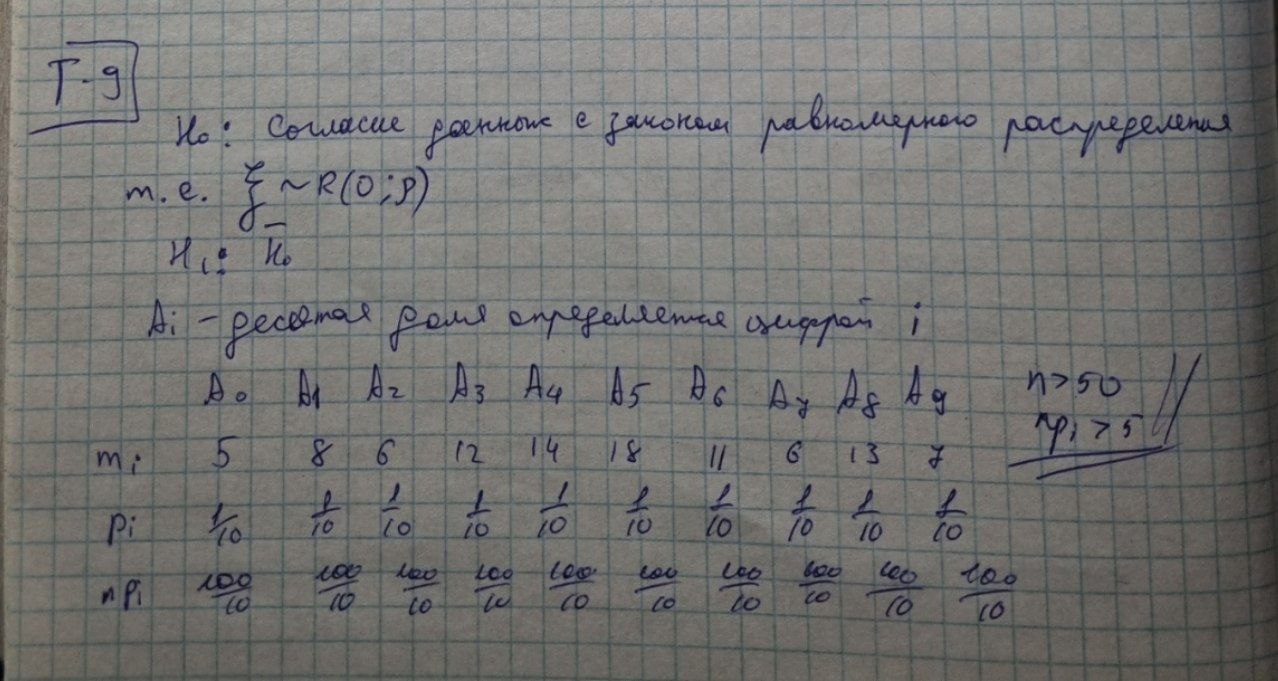 T-9
H₀: Согласие данных с законом равномерного распределения
т.е. ξ ~ R(0;9)
H₁: H̄₀
Ai - десятая доля определяется цифрой i
A₀ A₁ A₂ A₃ A₄ A₅ A₆ A₇ A₈ A₉
mi 5 8 6 12 14 18 11 6 13 7
pi 1/10 1/10 1/10 1/10 1/10 1/10 1/10 1/10 1/10 1/10
npi 100/10 100/10 100/10 100/10 100/10 100/10 100/10 100/10 100/10 100/10
n>50
npi >5